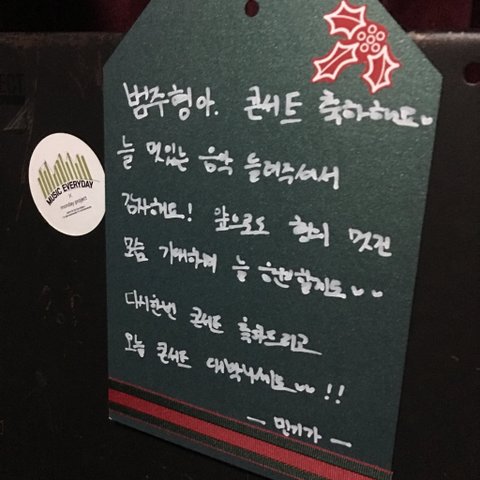 범주형아. 콘서트 축하해요♥
늘 멋있는 음악 들려주셔서
감사해요! 앞으로도 형의 멋진
모습 기대하며 늘 응원할게요♥♥
다시한번 콘서트 축하드리고
오늘 콘서트 대박나세요♥♥!!
- 민기가 -
MUSIC EVERYDAY
x
monday project